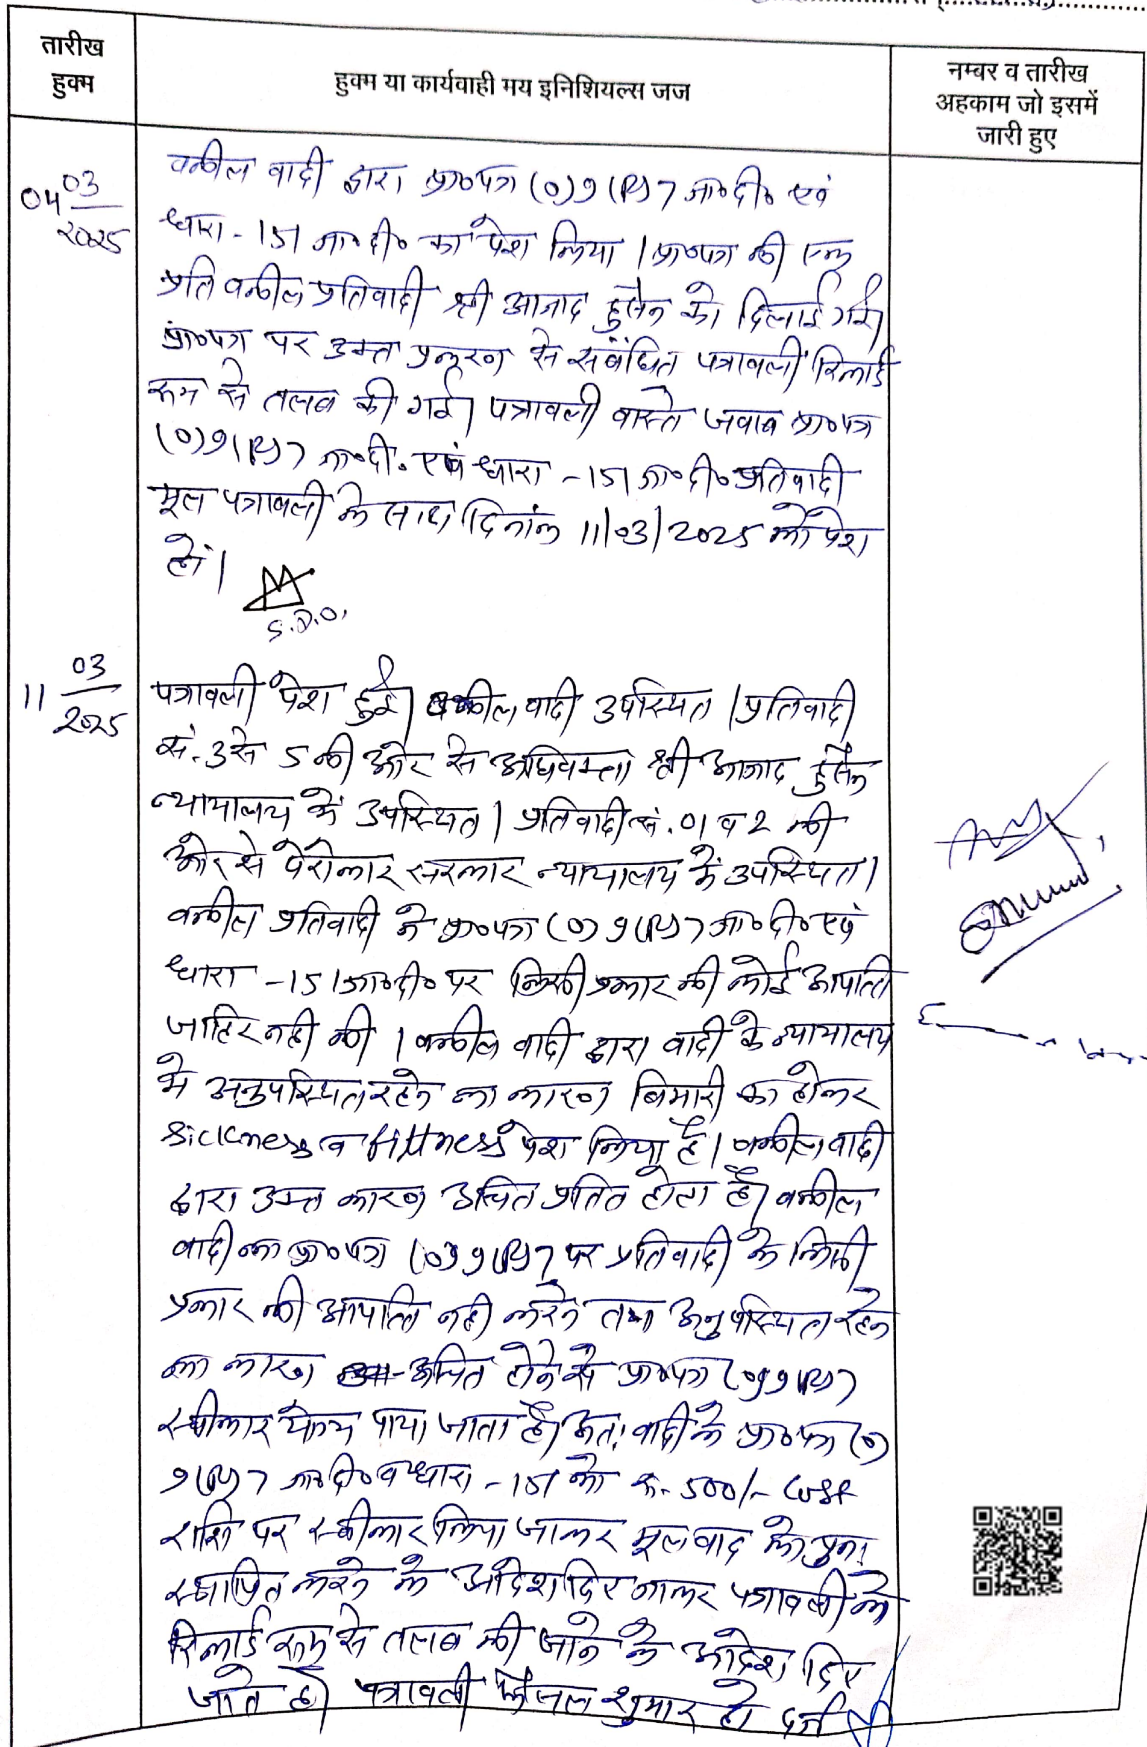 तारीख
हुक्म
हुक्म या कार्यवाही मय इनिशियल्स जज
नम्बर व तारीख
अहकाम जो इसमें
जारी हुए
04 03/2025
वकील वादी द्वारा प्रा०पत्र (0)9(R)7 जा०दी० एवं
धारा - 151 जा०दी० का पेश किया। प्रा०पत्र की एक
प्रति वकील प्रतिवादी श्री आजाद हुसैन को दिलाई गई।
प्रा०पत्र पर उक्त प्रकरण से संबंधित पत्रावली रिकार्ड
रूम से तलब की गई। पत्रावली वास्ते जवाब प्रा०पत्र
(0)9(R)7 जा०दी. एवं धारा - 151 जा०दी० प्रतिवादी
मूल पत्रावली के साथ दिनांक 11/03/2025 को पेश
हो।
S.D.O.
11 03/2025
पत्रावली पेश हुई। वकील वादी उपस्थित। प्रतिवादी
सं. 3 से 5 की ओर से अधिवक्ता श्री आजाद हुसैन
न्यायालय में उपस्थित। प्रतिवादी सं. 01 व 2 की
ओर से पेरोकार सरकार न्यायालय में उपस्थित।
वकील प्रतिवादी ने प्रा०पत्र (0)9(R)7 जा०दी० एवं
धारा - 151 जा०दी० पर किसी प्रकार की कोई आपत्ति
जाहिर नही की। वकील वादी द्वारा वादी के न्यायालय
मे अनुपस्थित रहने का कारण बिमारी का होकर
sickness व fittness पेश किया है। वकील वादी
द्वारा उक्त कारण उचित प्रतित होता है। वकील
वादी का प्रा०पत्र (0)9(R)7 पर प्रतिवादी के किसी
प्रकार की आपत्ति नही करने तथा अनुपस्थित रहने
का कारण उचित होने से प्रा०पत्र (0)9(R)7
स्वीकार योग्य पाया जाता है। अतः वादी के प्रा०पत्र (0)
9(R)7 जा०दी० व धारा - 151 को रू. 500/- cost
राशि पर स्वीकार किया जाकर मूल वाद को पुनः
स्थापित करने के आदेश दिए जाकर पत्रावली को
रिकार्ड रूम से तलब की जाने के आदेश दिए
जाते है। पत्रावली फैसल शुमार हो दर्ज